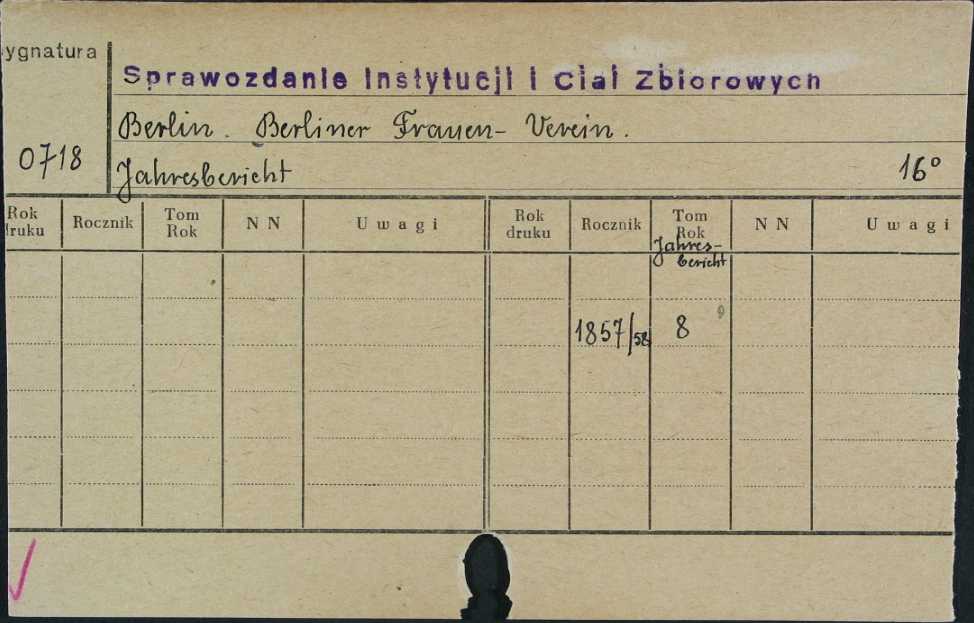 ygnatura
Sprawozdanie Instytucji i Ciał Zbiorowych
Berlin. Berliner Frauen-Verein.
0718
Jahresbericht 16°
Rok druku Rocznik Tom Rok NN Uwagi Rok druku Rocznik Tom Rok NN Uwagi
Jahres-
bericht
1857/58 8